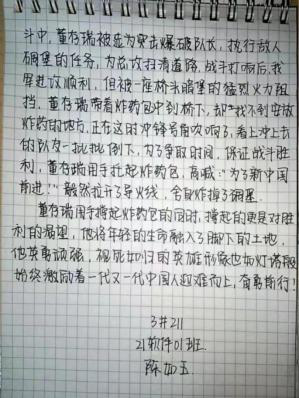 斗中,董存瑞被选为突击爆破队长,执行敌人
碉堡的任务,为总攻扫清道路,战斗打响后,我
军进攻顺利,但被一座桥头碉堡的猛烈火力阻
挡。董存瑞带着炸药包冲到桥下,却找不到安放
炸药的地方,正在这时冲锋号角吹响了,看上冲上去
的队友一批批倒下,为了争取时间,保证战斗胜
利,董存瑞用手托起炸药包,高喊:"为了新中国
前进!"毅然拉开了导火线,舍身炸掉了碉堡。
董存瑞用手撑起炸药包的同时,撑起的更是对胜
利的渴望,他将年轻的生命融入了脚下的土地,
他英勇顽强,视死如归的英雄形象也如灯塔般
始终激励着一代又一代中国人迎难而上,奋勇前行!
3井211
21软件01班
陈如玉